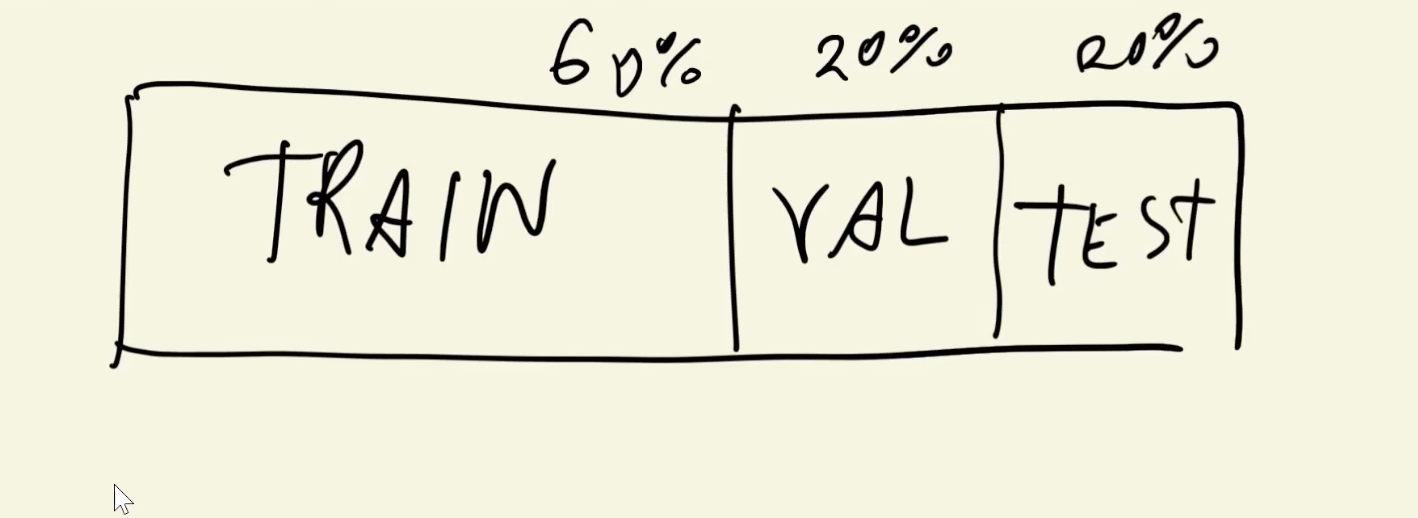 60% 20% 20%
TRAIN VAL TEST